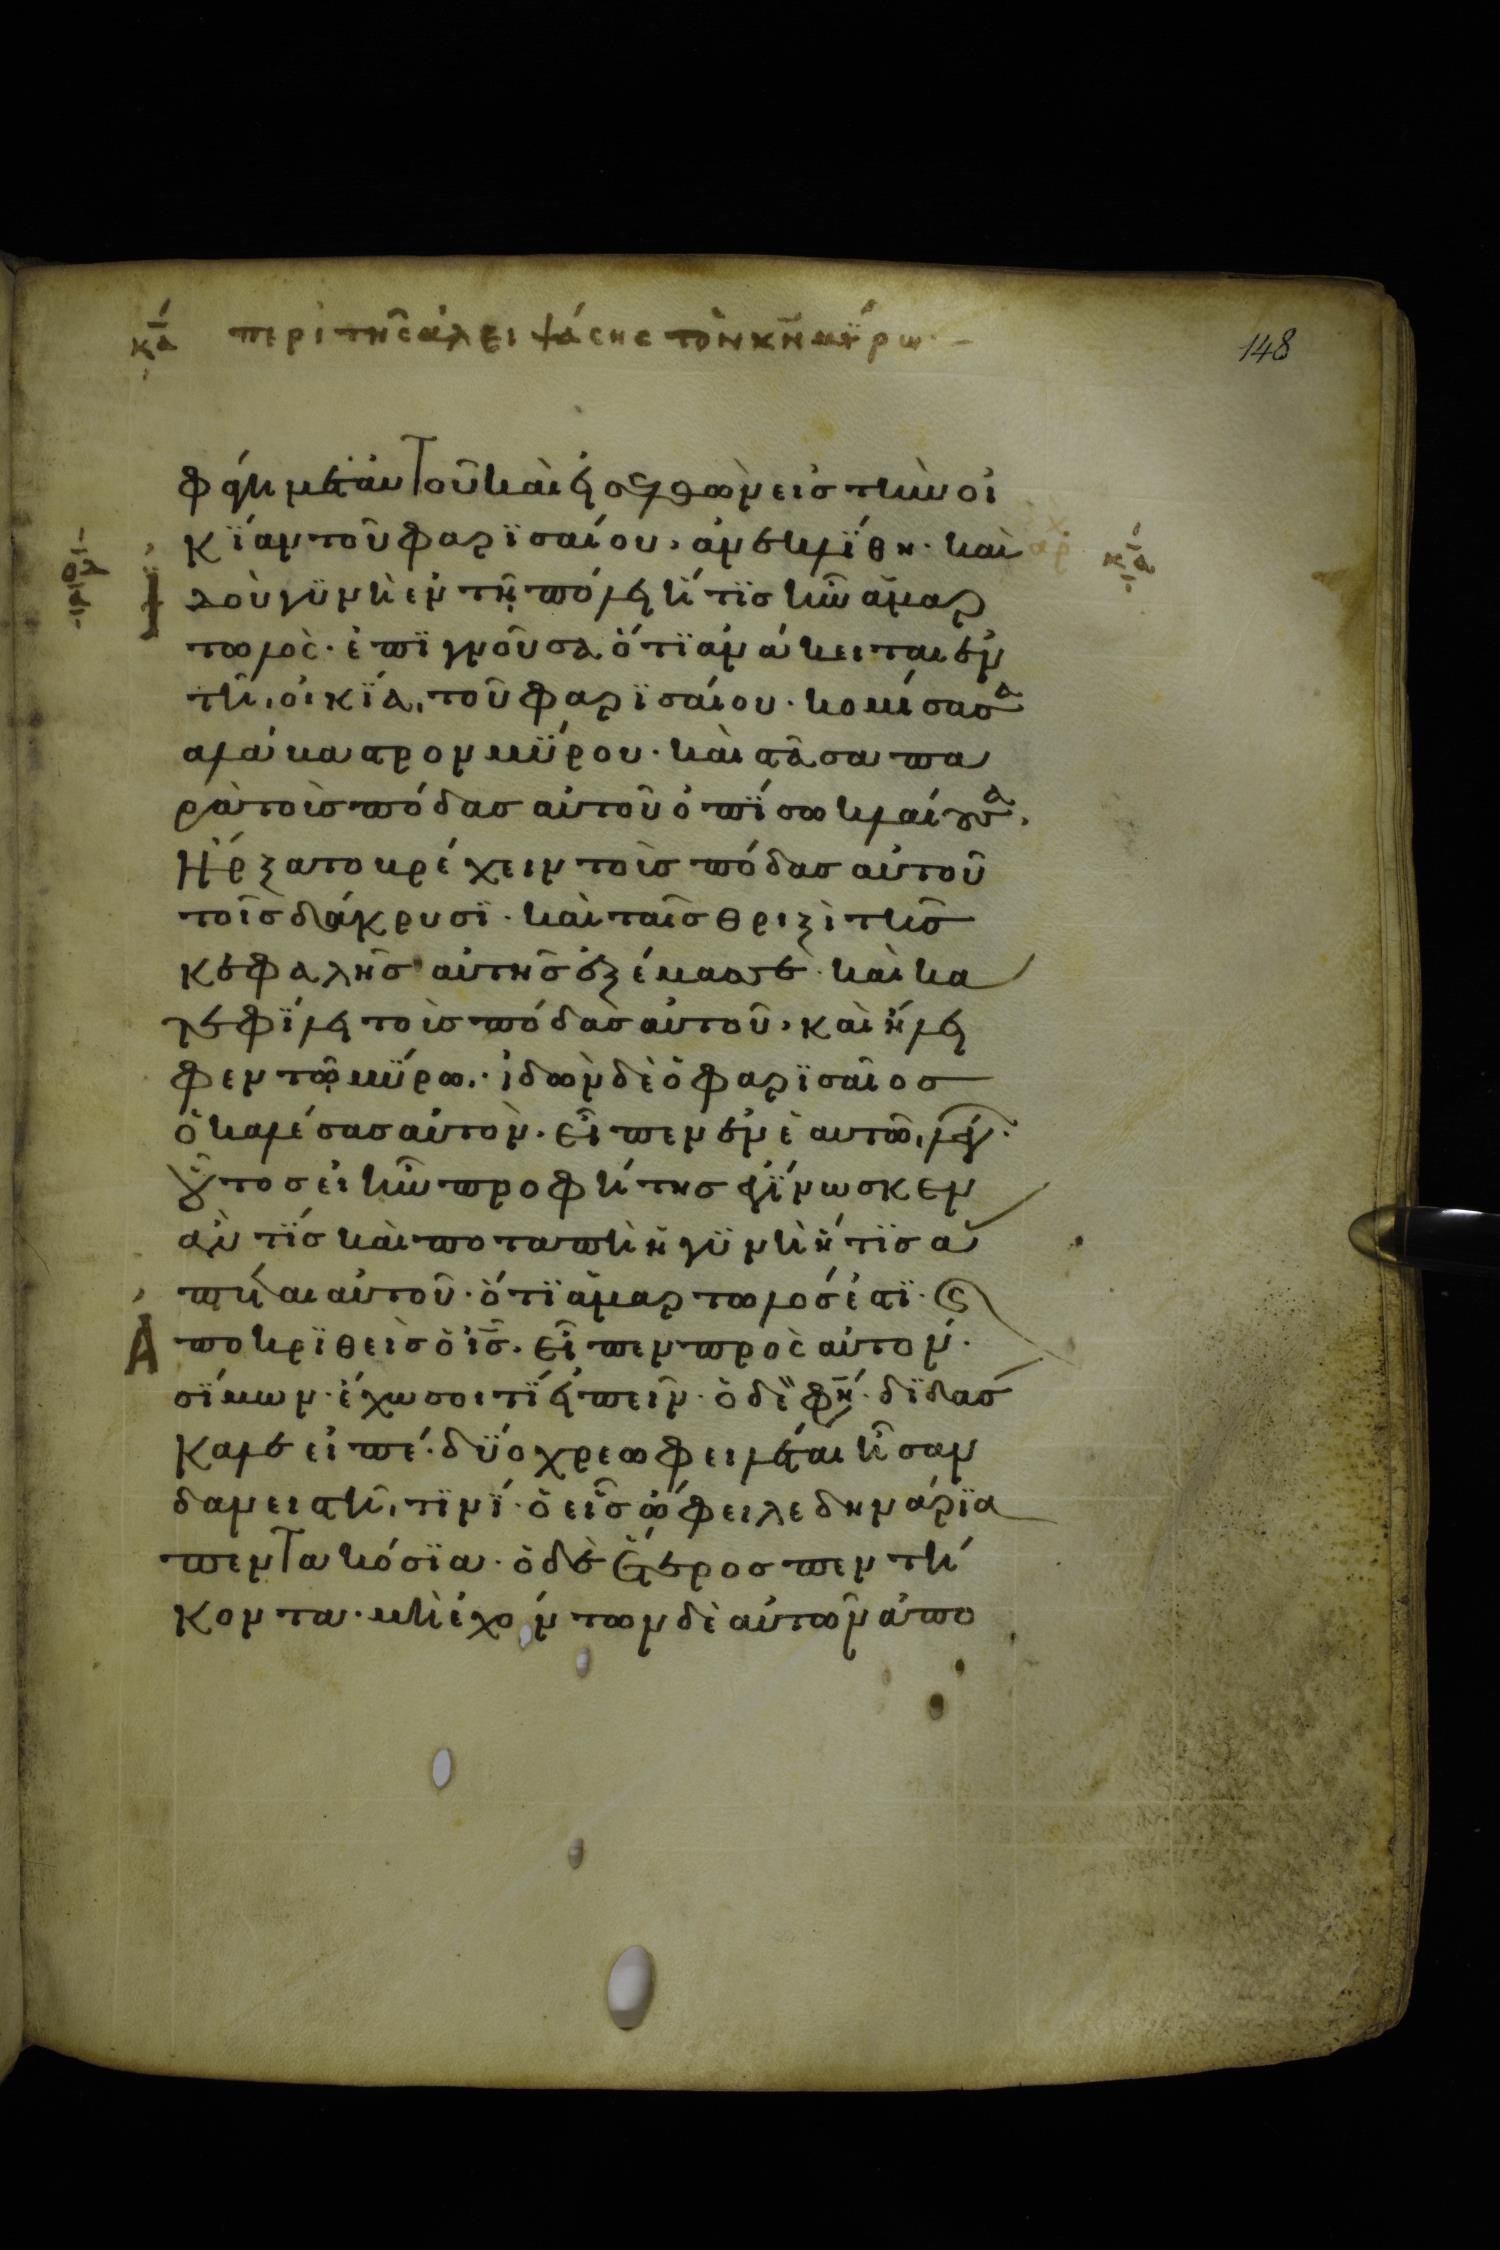 κα περὶ τῆς ἀλειψάσης τὸν κν μύρω
148
φάγη μετ' αυτοῦ καὶ εἰσελθὼν εἰς τὴν οἰ
κΐαν τοῦ φαρϊσαίου, ἀνεκλΐθη· καὶ
κα
ολ
Ι
δοὺ γϋνὴ ἐν τῆ πόλει ἥτϊς ἦν ἁμαρ
τωλὸς· ἐπϊγνοῦσα ὅτϊ ἀνάκειται ἐν
τῆ οἰκΐα τοῦ φαρϊσαίου· κομίσασα
αλάκαστρον μϋρου· καὶ στᾶσα πα
ρὰ τοὺς πόδας αὐτοῦ ὀπΐσω κλαίουσα,
Ἤρξατο βρέχειν τοὺς πόδας αὐτοῦ
τοῖς δάκρυσϊ· καὶ ταῖς θριξὶ τῆς
κεφαλῆς αὐτῆς ἐξέμασσε· καὶ κα
τεφΐλει τοὺς πόδας αὐτοῦ, καὶ ἤλει
φεν τῶ μϋρω· ἰδὼν δὲ ὁ φαρϊσαῖος
ὁ καλέσας αὐτὸν· εἶπεν ἐν ἑαυτῶ λέγων·
οὗτος εἰ ἦν προφήτης ἐγΐνωσκεν
ἂν τΐς καὶ ποταπὴ ἡ γϋνὴ ἥτϊς ἅ
πτεται αὐτοῦ· ὅτϊ ἁμαρτωλός ἐστϊ· καὶ
Ἀ
ποκρϊθεὶς ὁ ις· εἶπεν πρὸς αὐτόν·
σΐμων· ἔχω σοι τΐ εἰπεῖν· ὁ δὲ φησίν· δϊδάσ
καλε εἰπέ· δϋο χρεωφειλέται ἦσαν
δανειστῆ τϊνΐ· ὁ εἷς ὤφειλε δηνάρϊα
πεντακόσϊα· ὁ δὲ ἕτερος πεντή
κοντα· μὴ ἐχόντων δὲ αὐτῶν ἀπο